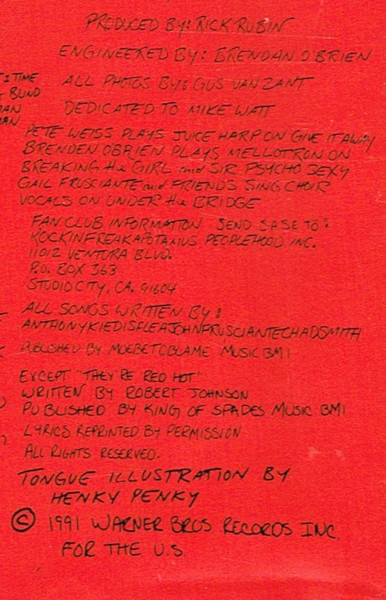 PRODUCED BY: RICK RUBIN
ENGINEERED BY: BRENDAN O'BRIEN
TIME
ALL PHOTOS BY: GUS VAN ZANT
BLIND
DEDICATED TO MIKE WATT
PETE WEISS PLAYS JUICE HARP ON GIVE IT AWAY
BRENDEN OBRIEN PLAYS MELLOTRON ON
BREAKING the GIRL and SIR PSYCHO SEXY
GAIL FRUSCIANTE and FRIENDS SING CHOIR
VOCALS ON UNDER the BRIDGE
FAN CLUB INFORMATION SEND SASE TO:
ROCKINFREAKAPOTAMUS PEOPLEHOOD INC.
11012 VENTURA BLVD.
P.O. BOX 363
STUDIO CITY, CA. 91604
ALL SONGS WRITTEN BY:
ANTHONYKIEDISFLEAJOHNFRUSCIANTECHADSMITH
PUBLISHED BY MOEBETOBLAME MUSIC BMI
EXCEPT "THEY'RE RED HOT"
WRITTEN BY ROBERT JOHNSON
PUBLISHED BY KING OF SPADES MUSIC BMI
LYRICS REPRINTED BY PERMISSION
ALL RIGHTS RESERVED.
TONGUE ILLUSTRATION BY
HENKY PENKY
© 1991 WARNER BROS RECORDS INC.
FOR THE U.S.